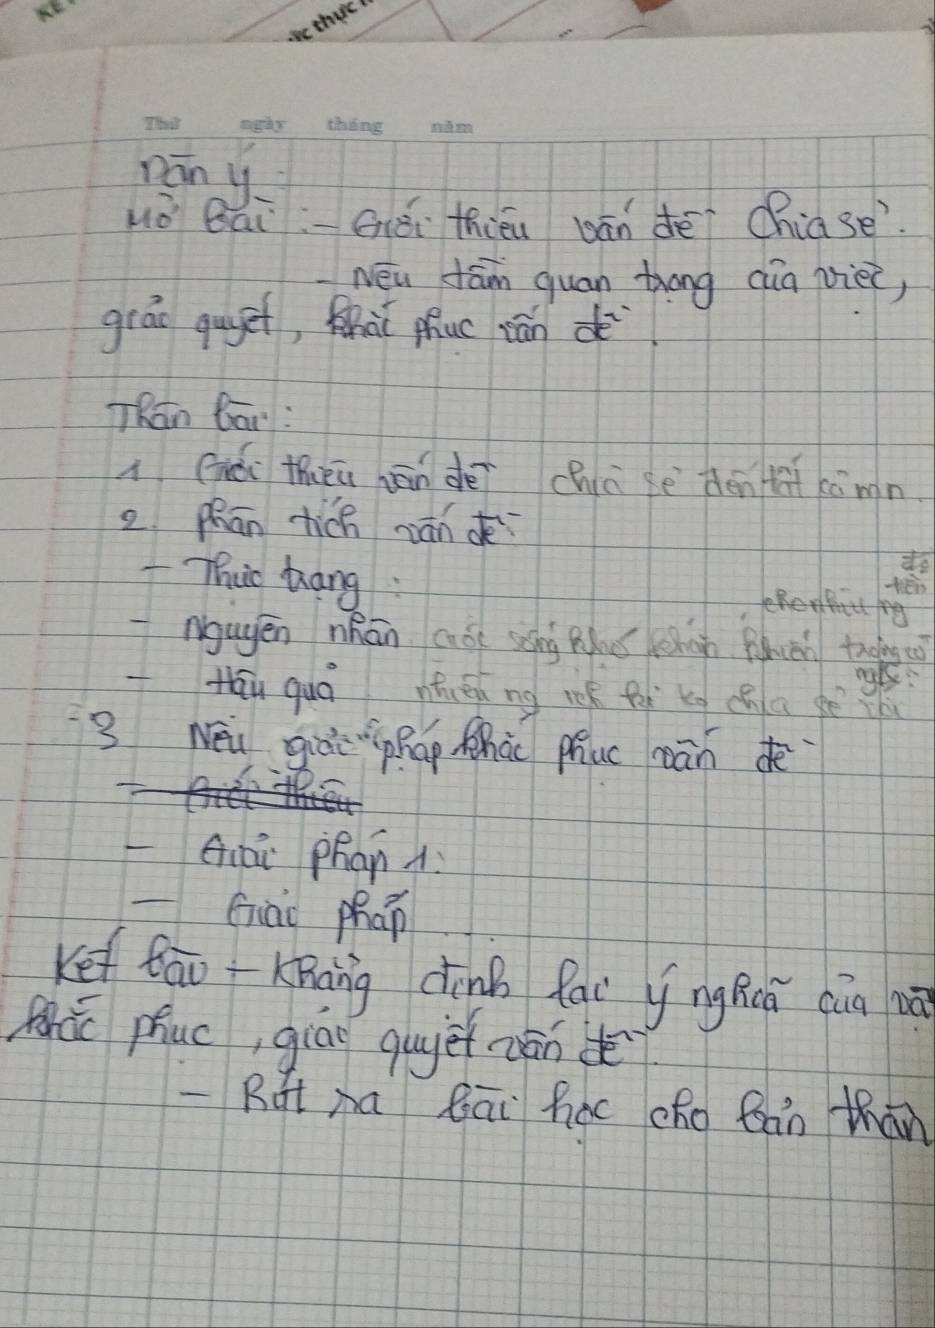 thực
Thứ ngày tháng năm
Dàn ý
Mở Bài : - Giới thiệu vấn đề Chia sẻ.
- Nêu tầm quan trọng của việc,
giải quyết, khắc phục vấn đề.
Thân bài:
1 Giới thiệu vấn đề chia sẻ đến tất cả mn.
2. phân tích vấn đề
- Thực trạng :
- Nguyên nhân cuộc sống khó khăn
- Hậu quả
3 Nêu giải pháp khắc phục vấn đề
- Giới thiệu
- Giải pháp 1:
- Giải pháp
Kết bài - Khẳng định lại ý nghĩa của
khắc phục, giải quyết vấn đề.
- Rút ra bài học cho bản thân